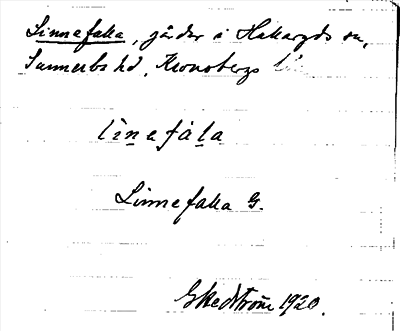 Linnefalla, gårdar i Hallaryds sn,
Sunnerbo hd, Kronobergs län
linefàla
Linnefalla G.
G Hedström 1920.